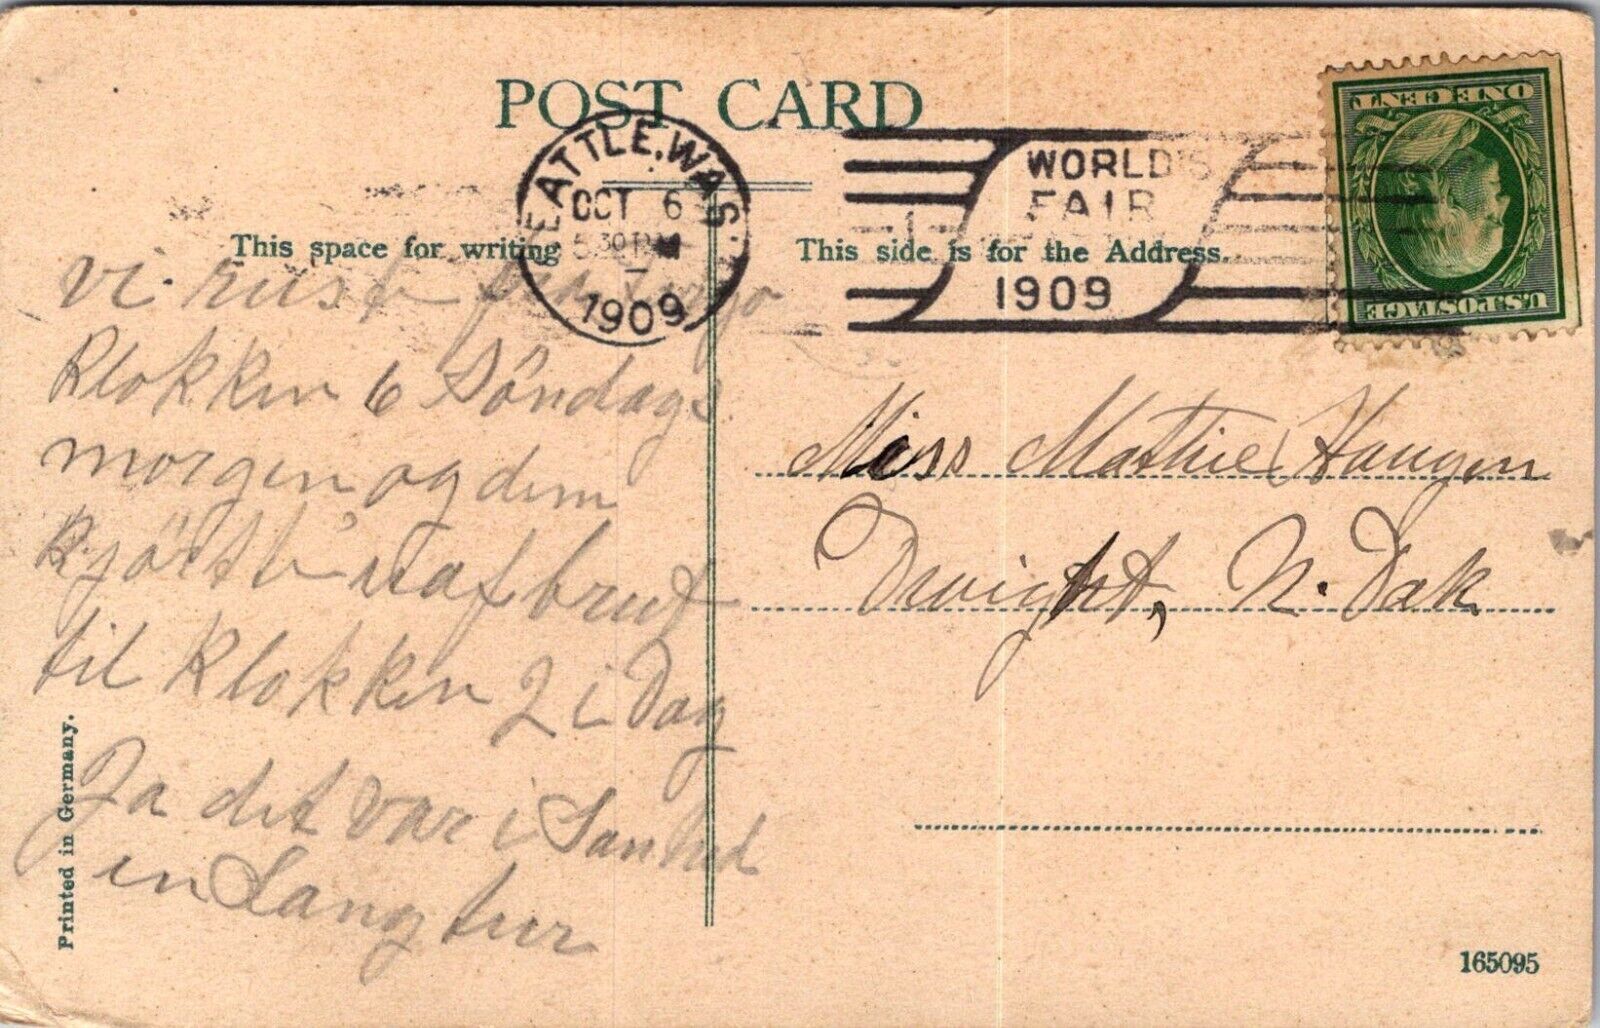 POST CARD
SEATTLE, WASH.
OCT 6
5:30 PM
1909
WORLD'S
FAIR
1909
ONE CENT
U.S. POSTAGE
This space for writing
This side is for the Address.
vi reiste fra Fargo
Klokken 6 Söndags
morgen og dem
kjörte uafbrut
til Klokken 2 i Dag
Ja det var i Sanhed
en Lang tur
Miss Mathie Haugen
Dwight, N. Dak
Printed in Germany.
165095